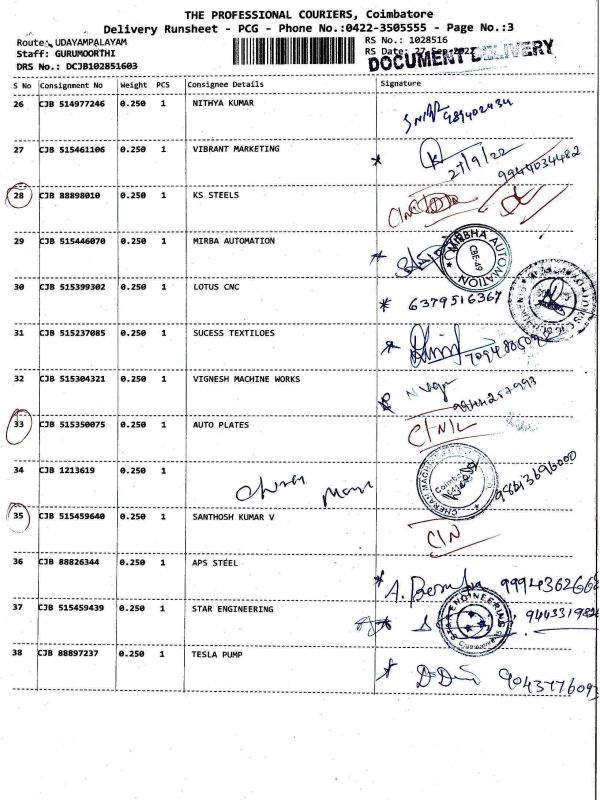 THE PROFESSIONAL COURIERS, Coimbatore
Delivery Runsheet - PCG - Phone No.:0422-3505555 - Page No.:3
Route: UDAYAMPALAYAM RS No.: 1028516
Staff: GURUMOORTHI RS Date: 27-Sep-2022
DOCUMENT DELIVERY
DRS No.: DCJB102851603
S No Consignment No Weight PCS Consignee Details Signature
26 CJB 514977246 0.250 1 NITHYA KUMAR
27 CJB 515461106 0.250 1 VIBRANT MARKETING 27/9/22 9944034482
28 CJB 88898010 0.250 1 KS STEELS
29 CJB 515446070 0.250 1 MIRBA AUTOMATION
MIRBHA AUTOMATION CBE-49
30 CJB 515399302 0.250 1 LOTUS CNC * 6379516367
31 CJB 515237085 0.250 1 SUCESS TEXTILOES
32 CJB 515304321 0.250 1 VIGNESH MACHINE WORKS
33 CJB 515350075 0.250 1 AUTO PLATES C/N/L
34 CJB 1213619 0.250 1
35 CJB 515459640 0.250 1 SANTHOSH KUMAR V C/N
36 CJB 88826344 0.250 1 APS STEEL
37 CJB 515459439 0.250 1 STAR ENGINEERING
STAR ENGINEERING
38 CJB 88897237 0.250 1 TESLA PUMP